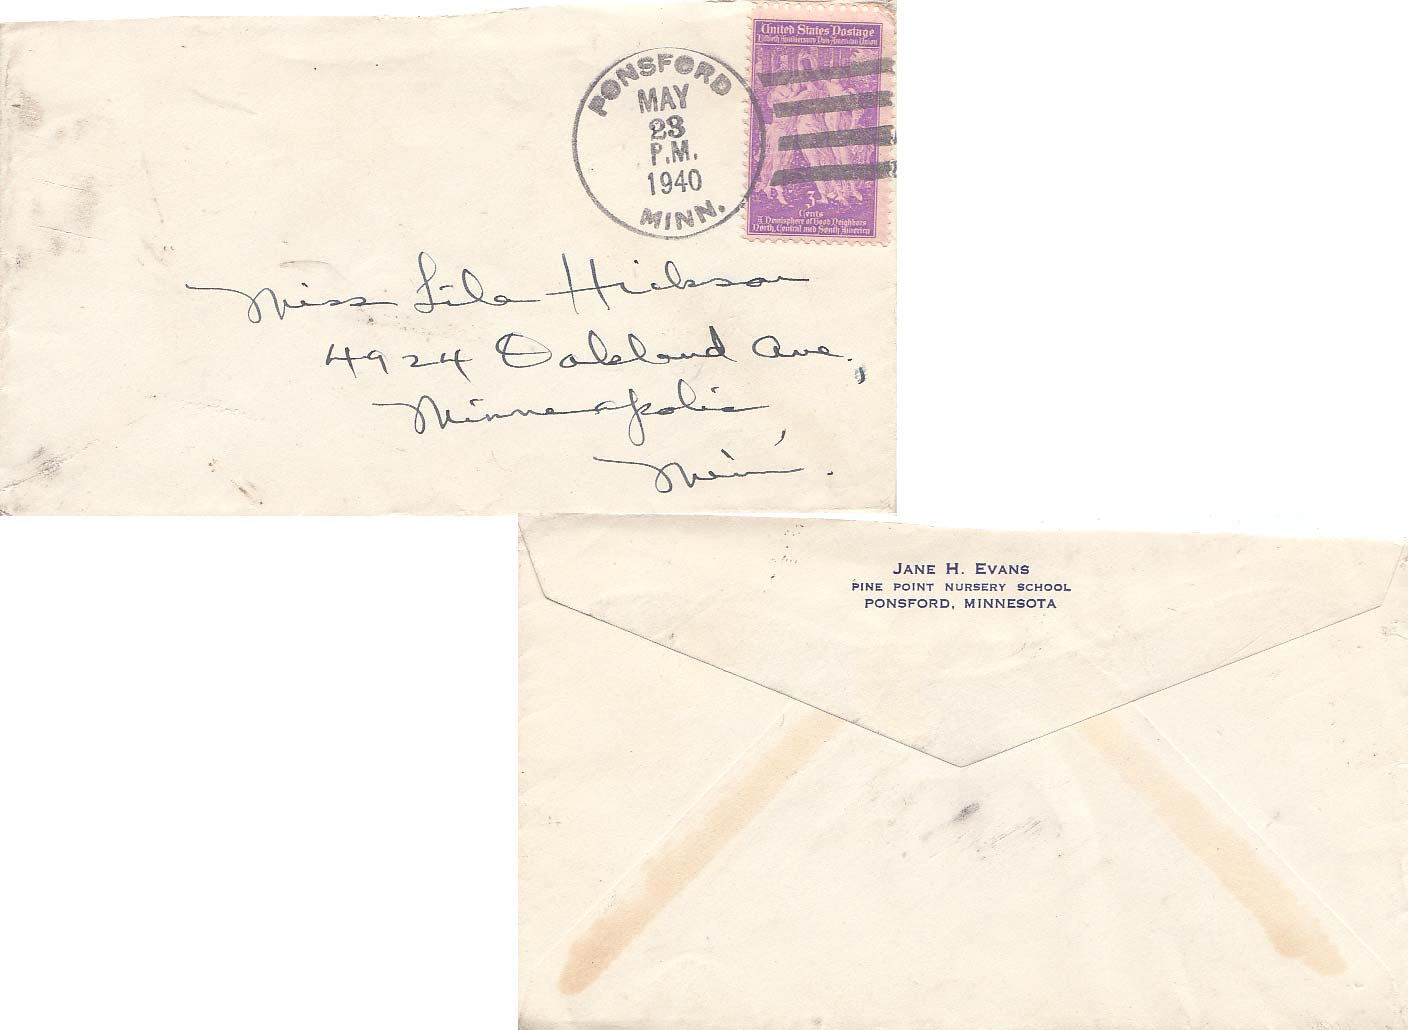 PONSFORD
MAY
23
P.M.
1940
MINN.
United States Postage
Fiftieth Anniversary Pan-American Union
3
Cents
A Hemisphere of Good Neighbors
North, Central and South America
Miss Lila Hickson
4924 Oakland Ave.,
Minneapolis,
Minn.
JANE H. EVANS
PINE POINT NURSERY SCHOOL
PONSFORD, MINNESOTA